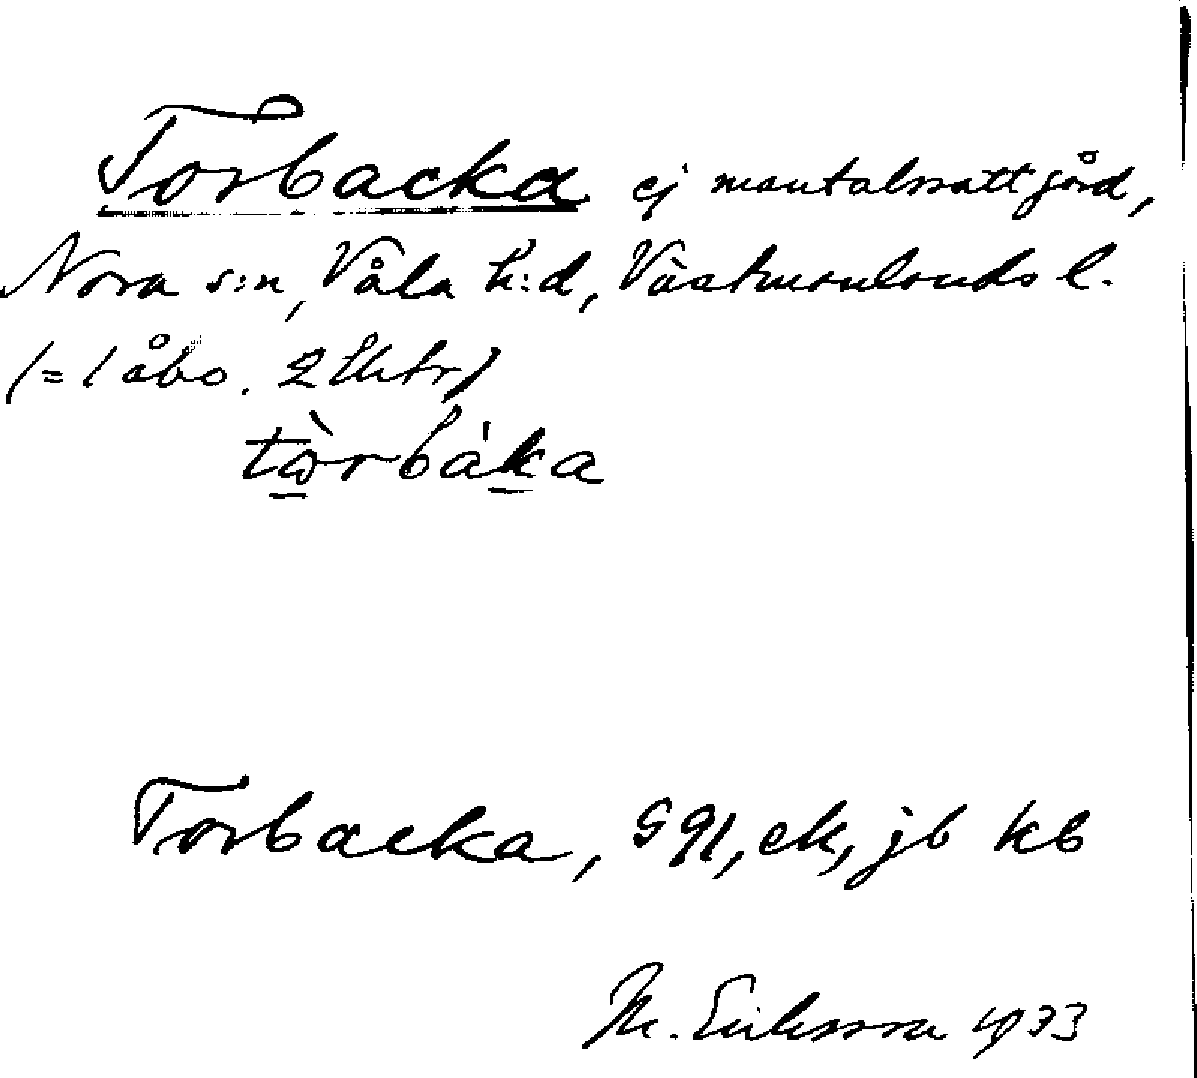 Torbacka ej mantalssatt jord,
Nora s:n, Våla h:d, Västmanlands l.
(= 1 åbo. 2 lhtr)
tòrbáka
Torbacka, ek, jb kb
M. Eriksson 1933